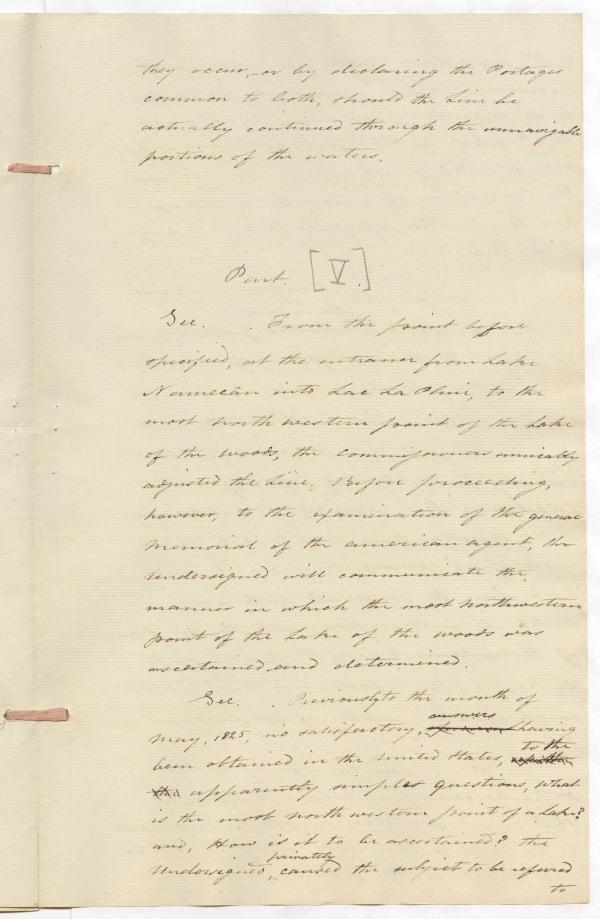 they occur, or by declaring the Portages
common to both, should the Line be
actually continued through the unnavigable
portions of the waters.
Part. [V.]
Sec. . From the point before
specified, at the entrance from Lake
Namecān into Lac La Pluie, to the
most north western point of the Lake
of the woods, the Commissioners amicably
adjusted the Line. Before proceeding,
however, to the examination of the general
Memorial of the american agent, the
Undersigned will communicate the
manner in which the most northwestern
point of the Lake of the woods was
ascertained and determined.
Sec. . Previously to the month of
May, 1825, no satisfactory, answers having
been obtained in the United States, to the
apparently simples questions, what
is the most north western point of a Lake?
and, How is it to be ascertained? the
Undersigned, privately caused the subject to be referred
to